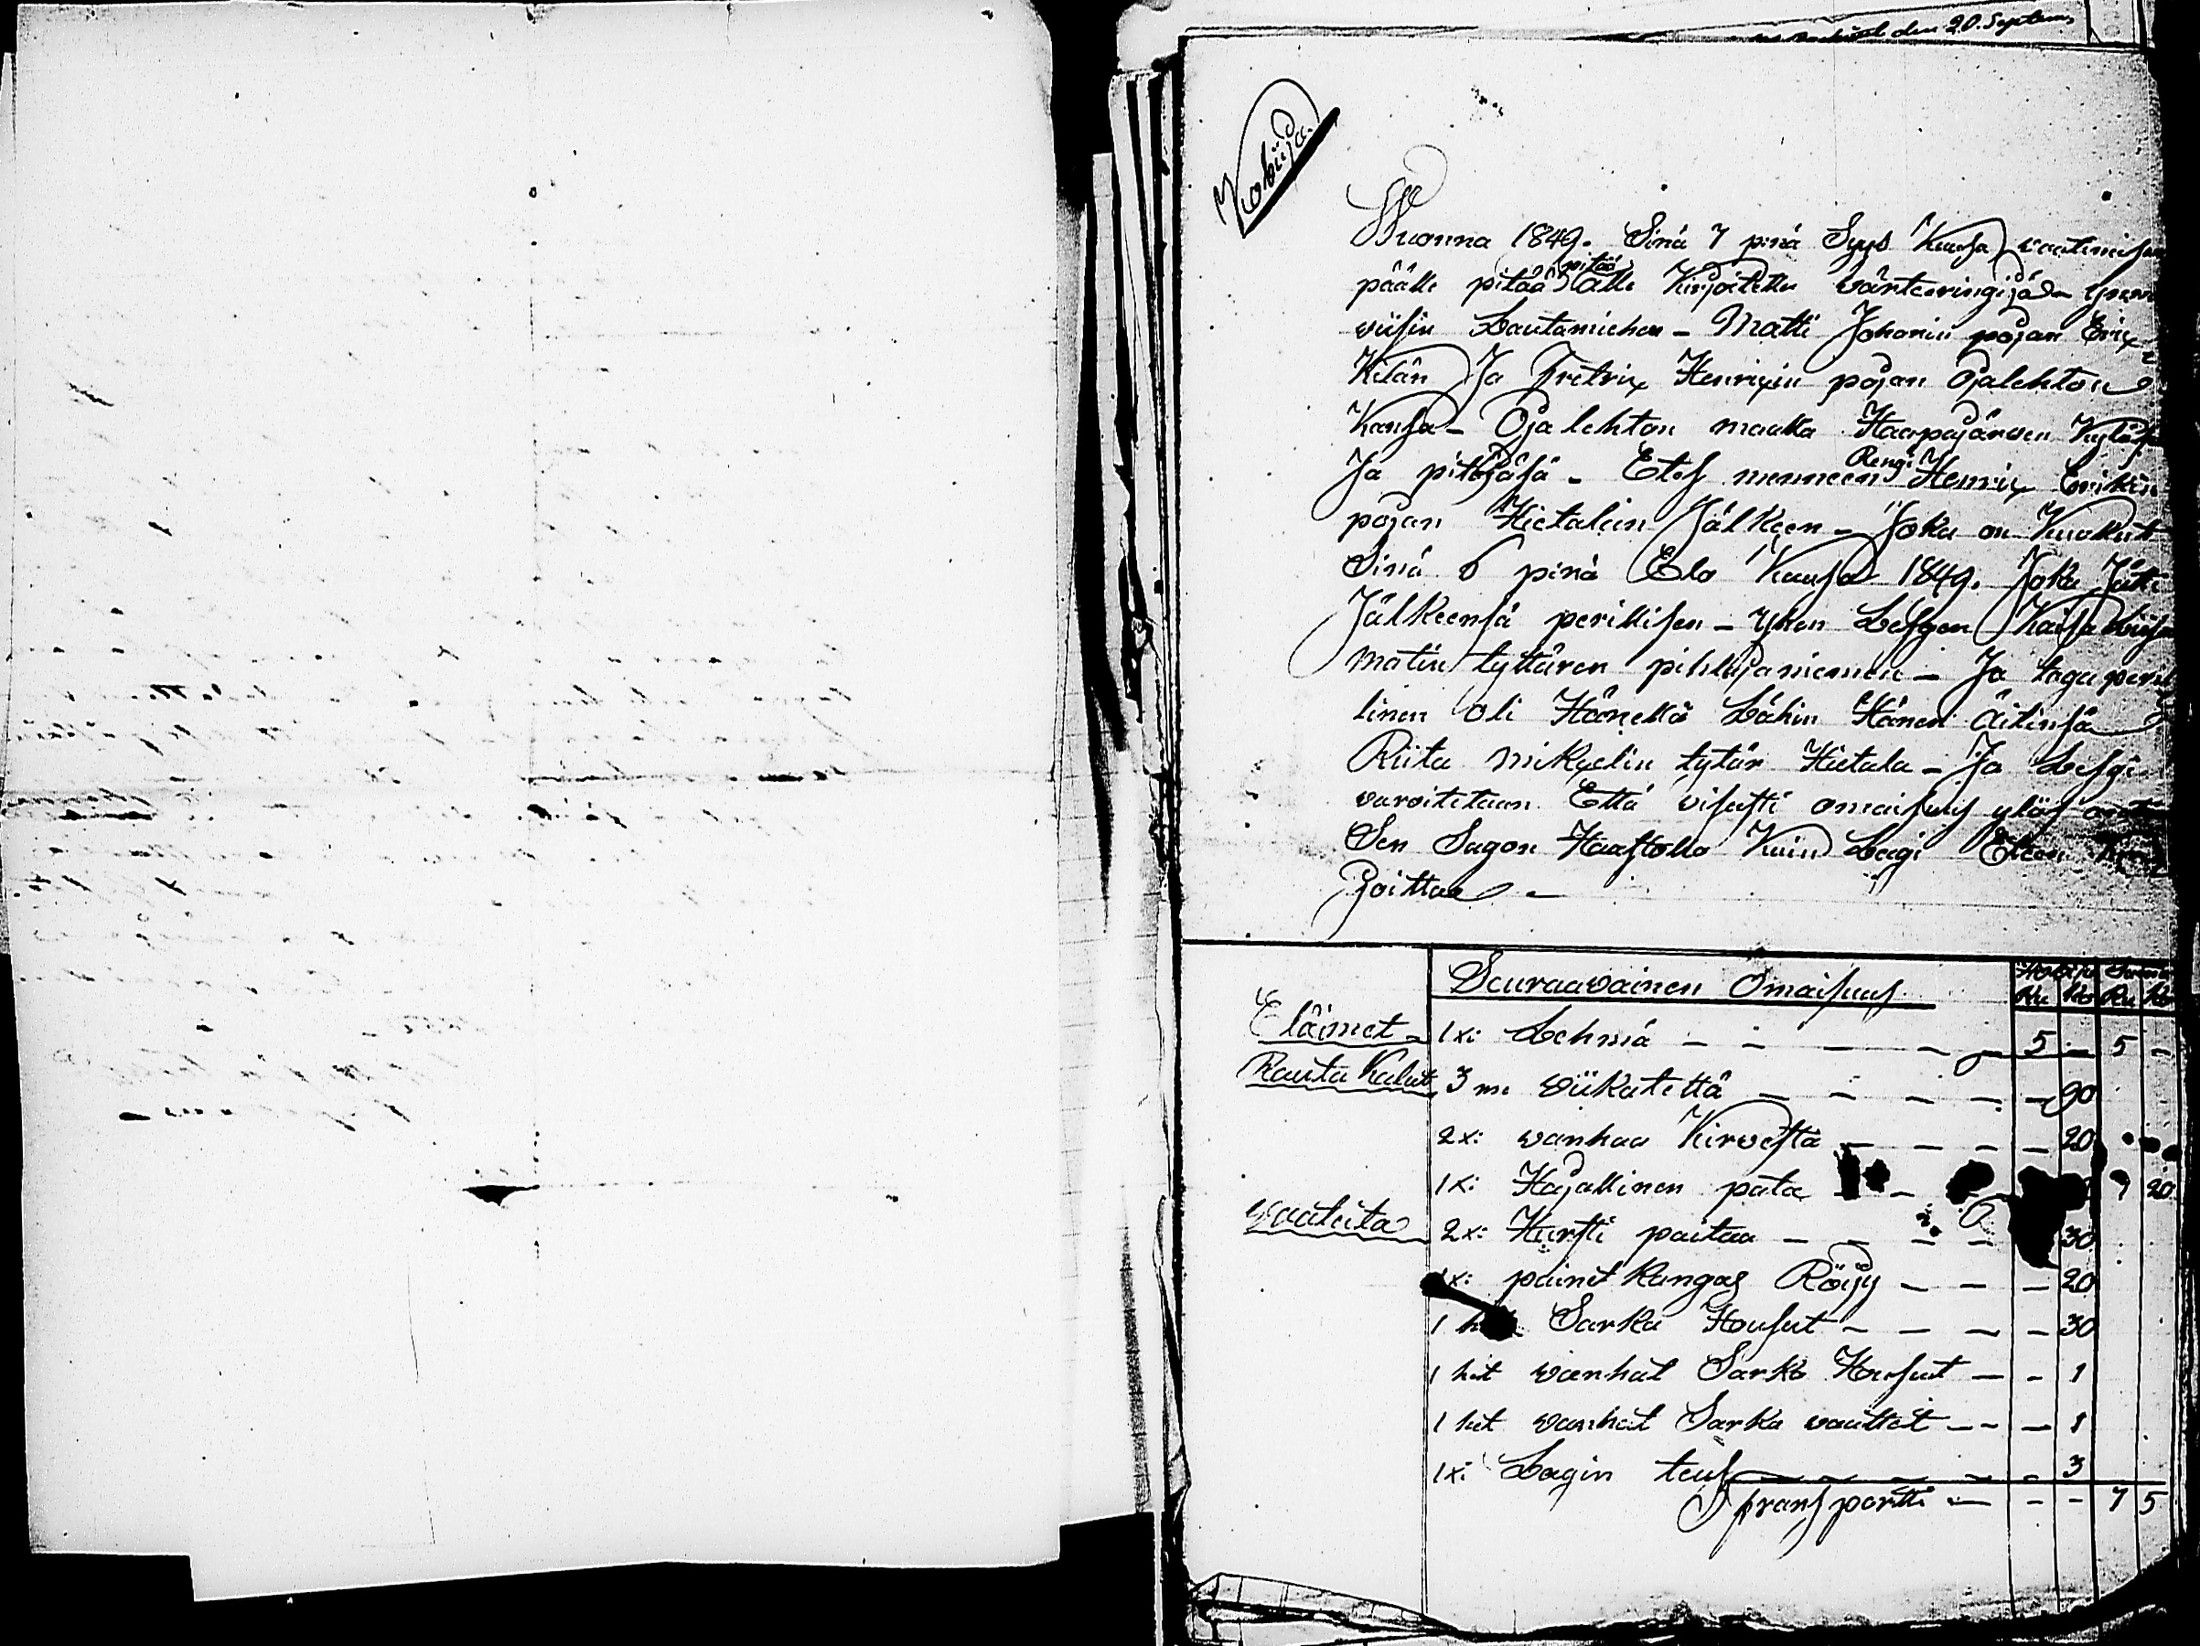 den 20. Septem
Kobiija
Wuonna 1849. Sinä 7 pnä Syys Kuusa vaatimisen
päälle pitää pitää alle Kirjoitettu värteeringijä
wiisin Lautamiehen - Matti Johanin pojan Erix
Kilän Ja Fretrix Henrixin pojan Ojalehton
Kansa - Ojalehton maalla Haapajärwen Kyläsä
Ja pitäjäsä - Etes menneen Rengi Henrix Erikin
pojan Hietalan Jälkeen - Joka on Kuollut
Sinä 6 pnä Elo Kuusa 1849. Joka Jätti
Jälkeensä perillisen - yhen Lesgen Kaisa Liisa
matin tyttären pihlajaniemen - Ja taga peril
linen oli Hänellä Lähin Hänen äitinsä
Riita mikaelin tytär Hietala - Ja Lesgi
varoitetaan Että visusti omaisuus ylös
Sen Sagon Haastolla Kuin Lagi Eteen Kir
joittaa -
Seuraavainen Omaisuus Ru Ko Ru Ko
Eläimet - 1 x: Lehmä - - - - 5 - 5 -
Rauta Kalut 3 m: wiikatettä - - - - - 90
2 x: wanhaa Kirvestä - - - - 20
1 x: Hajallinen pata - - 20
Waateita 2 x: Hursti paitaa - - - - 30
1 x: painet Kangas Röijy - - - 20
1 Sarka Housut - - - - 30
1 het wanhat Sarka Housut - - 1
1 het wanhat Sarka vanttet - - - 1
1 x: Lagin teus - - - - - 3
Transportti - - - 7 5